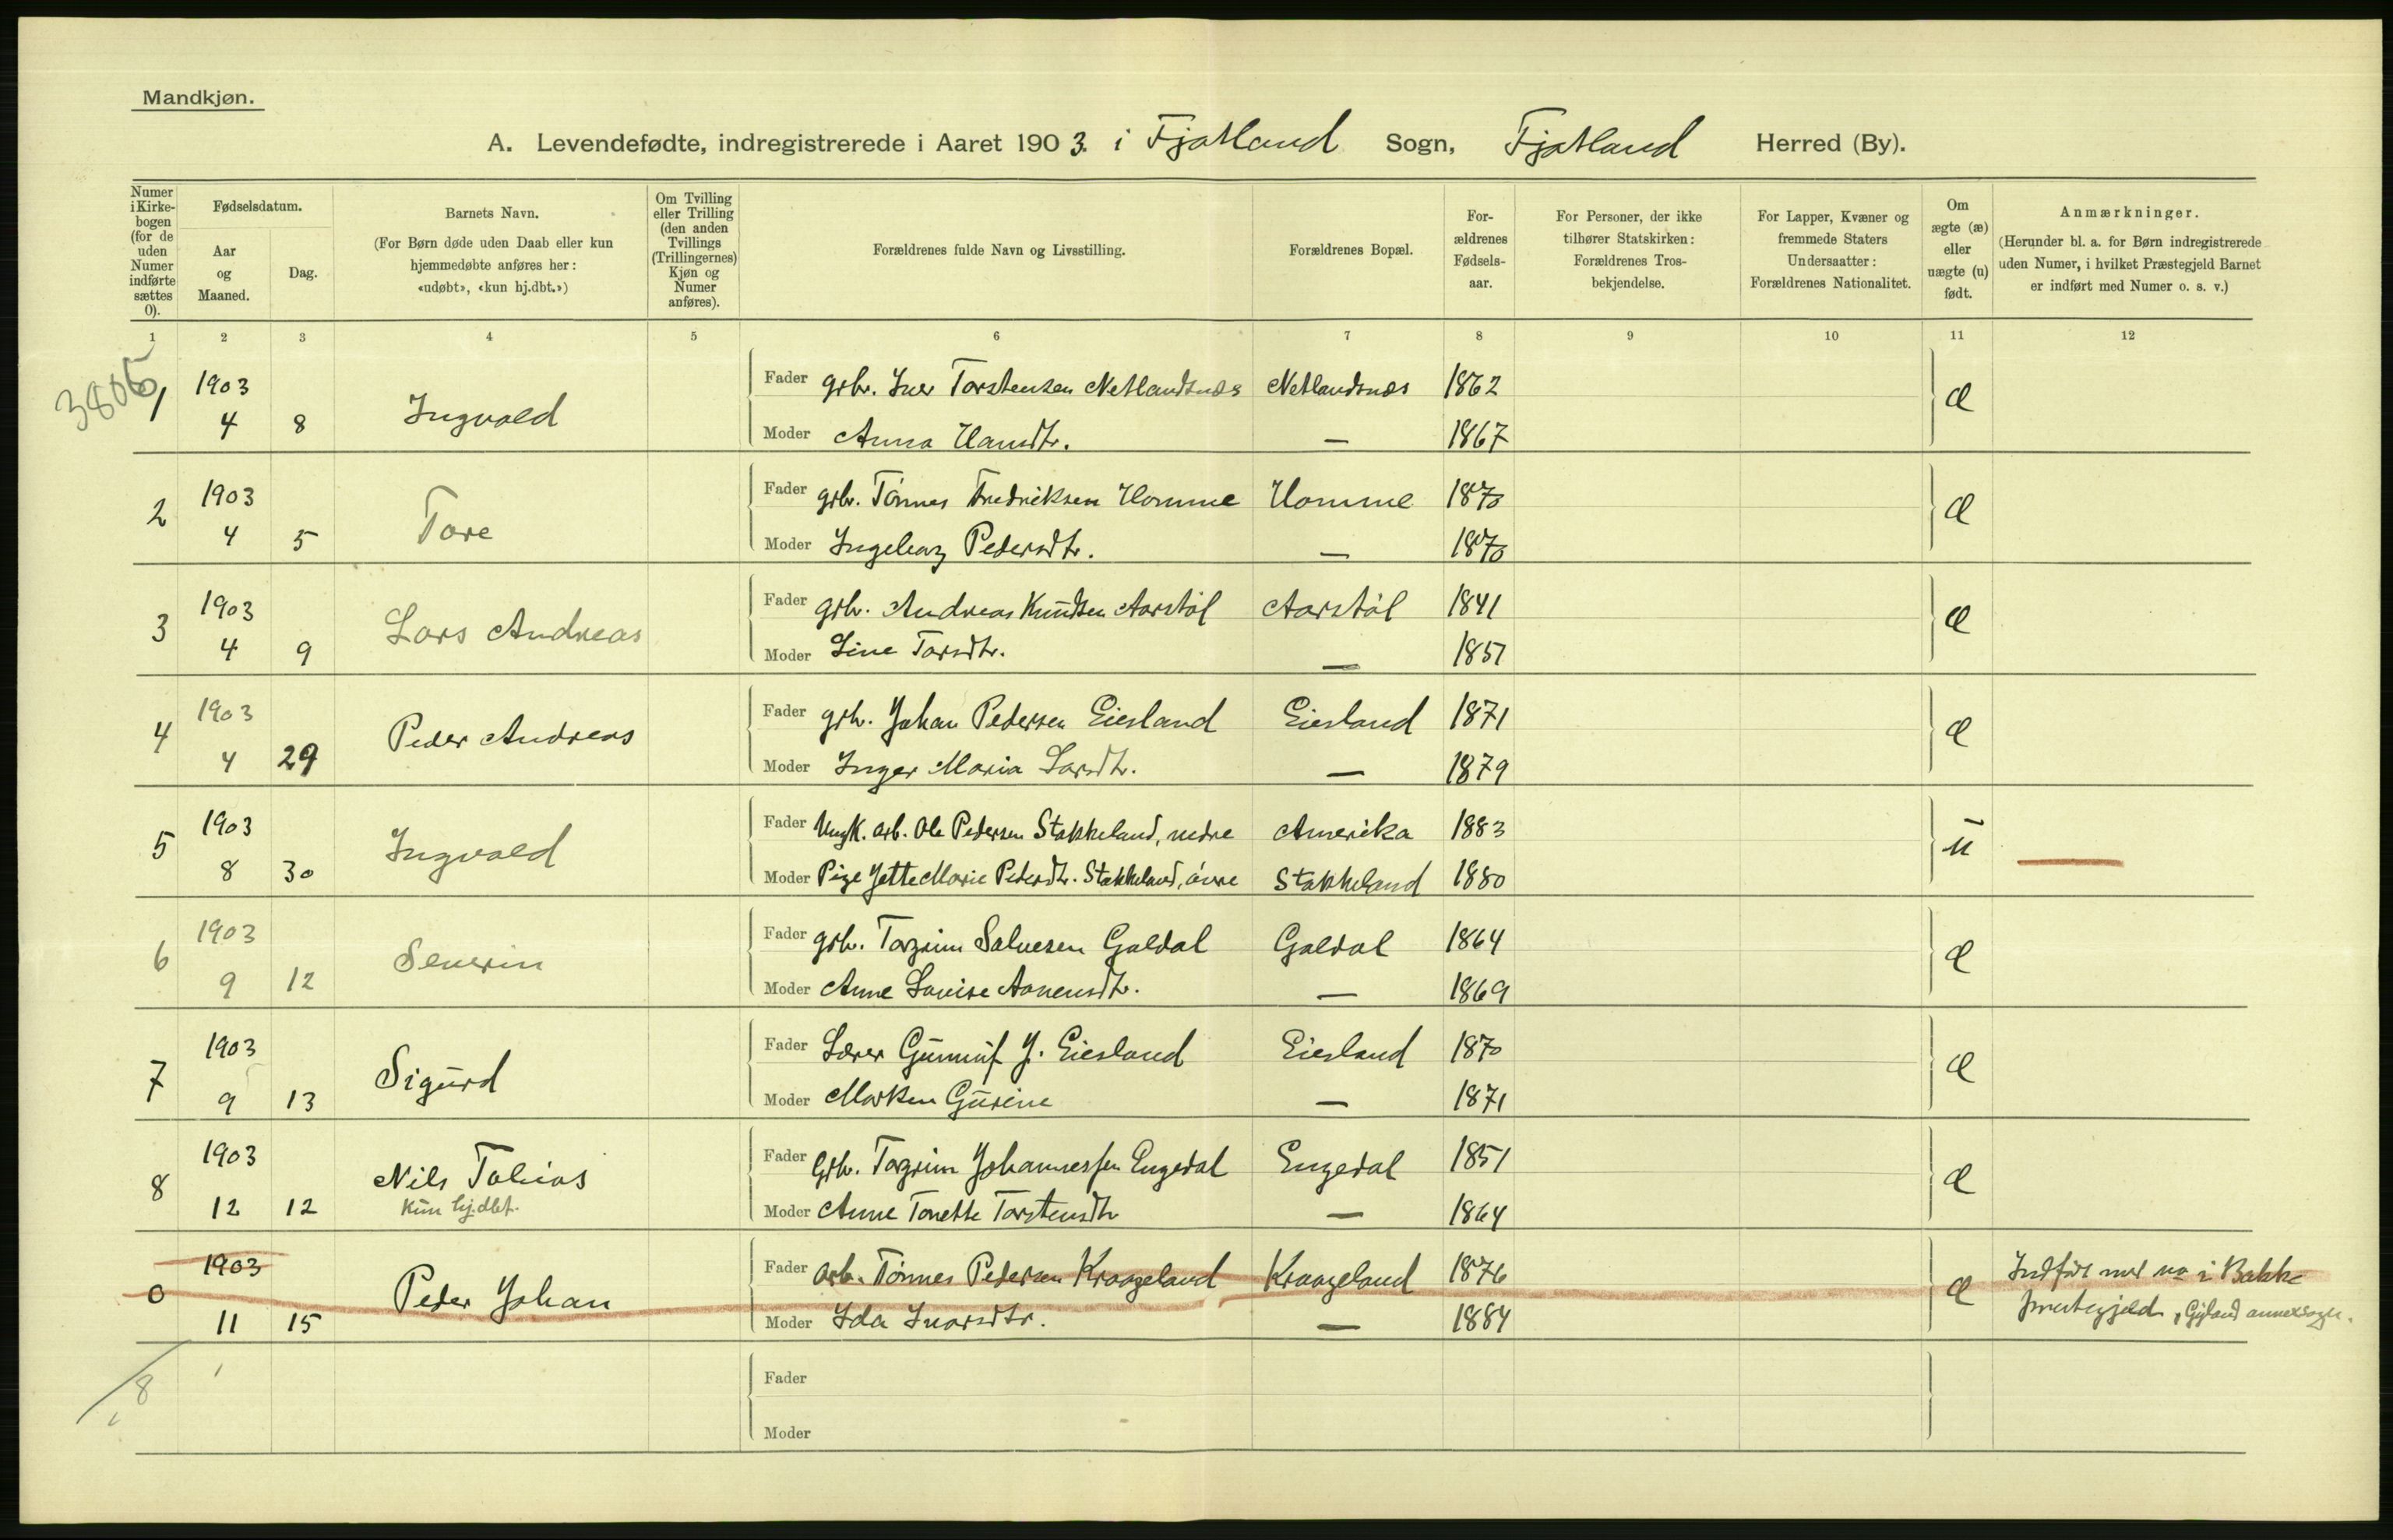 Mandkjøn.
A. Levendefødte, indregistrerede i Aaret 1903. i Fjotland Sogn, Fjotland Herred (By).
Numer i Kirkebogen (for de uden Numer indførte sættes 0).
Fødselsdatum.
Aar og Maaned.
Dag.
Barnets Navn.
(For Børn døde uden Daab eller kun hjemmedøbte anføres her: «udøbt», «kun hj.dbt.»)
Om Tvilling eller Trilling (den anden Tvillings (Trillingernes) Kjøn og Numer anføres).
Forældrenes fulde Navn og Livsstilling.
Forældrenes Bopæl.
Forældrenes Fødselsaar.
For Personer, der ikke tilhører Statskirken: Forældrenes Trosbekjendelse.
For Lapper, Kvæner og fremmede Staters Undersaatter: Forældrenes Nationalitet.
Om ægte (æ) eller uægte (u) født.
Anmærkninger.
(Herunder bl. a. for Børn indregistrerede uden Numer, i hvilket Præstegjeld Barnet er indført med Numer o. s. v.)
1 2 3 4 5 6 7 8 9 10 11 12
3806
1 1903 Fader grbr. Iver Torstensen Netlandsnæs Netlandsnæs 1862 æ
4 8 Ingvald Moder Anna Hansdtr. — 1867
2 1903 Fader grbr. Tönnes Fredriksen Homme Homme 1870 æ
4 5 Tore Moder Ingeborg Pedersdtr. — 1870
3 1903 Fader grbr. Andreas Knudsen Aarstöl Aarstöl 1841 æ
4 9 Lars Andreas Moder Line Torsdtr. — 1857
4 1903 Fader grbr. Johan Pedersen Eiesland Eiesland 1871 æ
4 29 Peder Andreas Moder Inger Maria Larsdtr. — 1879
5 1903 Fader Ungk. arb. Ole Pedersen Stakkeland, nedre Amerika 1883 u
8 30 Ingvald Moder Pige Jette Marie Pedersdtr. Stakkeland, övre Stakkeland 1880
6 1903 Fader grbr. Torgrim Salvesen Galdal Galdal 1864 æ
9 12 Severin Moder Anne Lovise Aanensdtr. — 1869
7 1903 Fader Lærer Gunnuf J. Eiesland Eiesland 1870 æ
9 13 Sigurd Moder Marken Gurine — 1871
8 1903 Fader Grbr. Torgrim Johannessen Engedal Engedal 1851 æ
12 12 Nils Tobias Moder Anne Tonette Torstensdtr — 1864
kun hj.dbt.
0 1903 Fader Arb. Tönnes Pedersen Kraageland Kraageland 1876 æ Indfört med no i Bakke
11 15 Peder Johan Moder Ida Ivarsdtr. — 1884 prestegjeld, Gyland annexsogn.
8 Fader
Moder